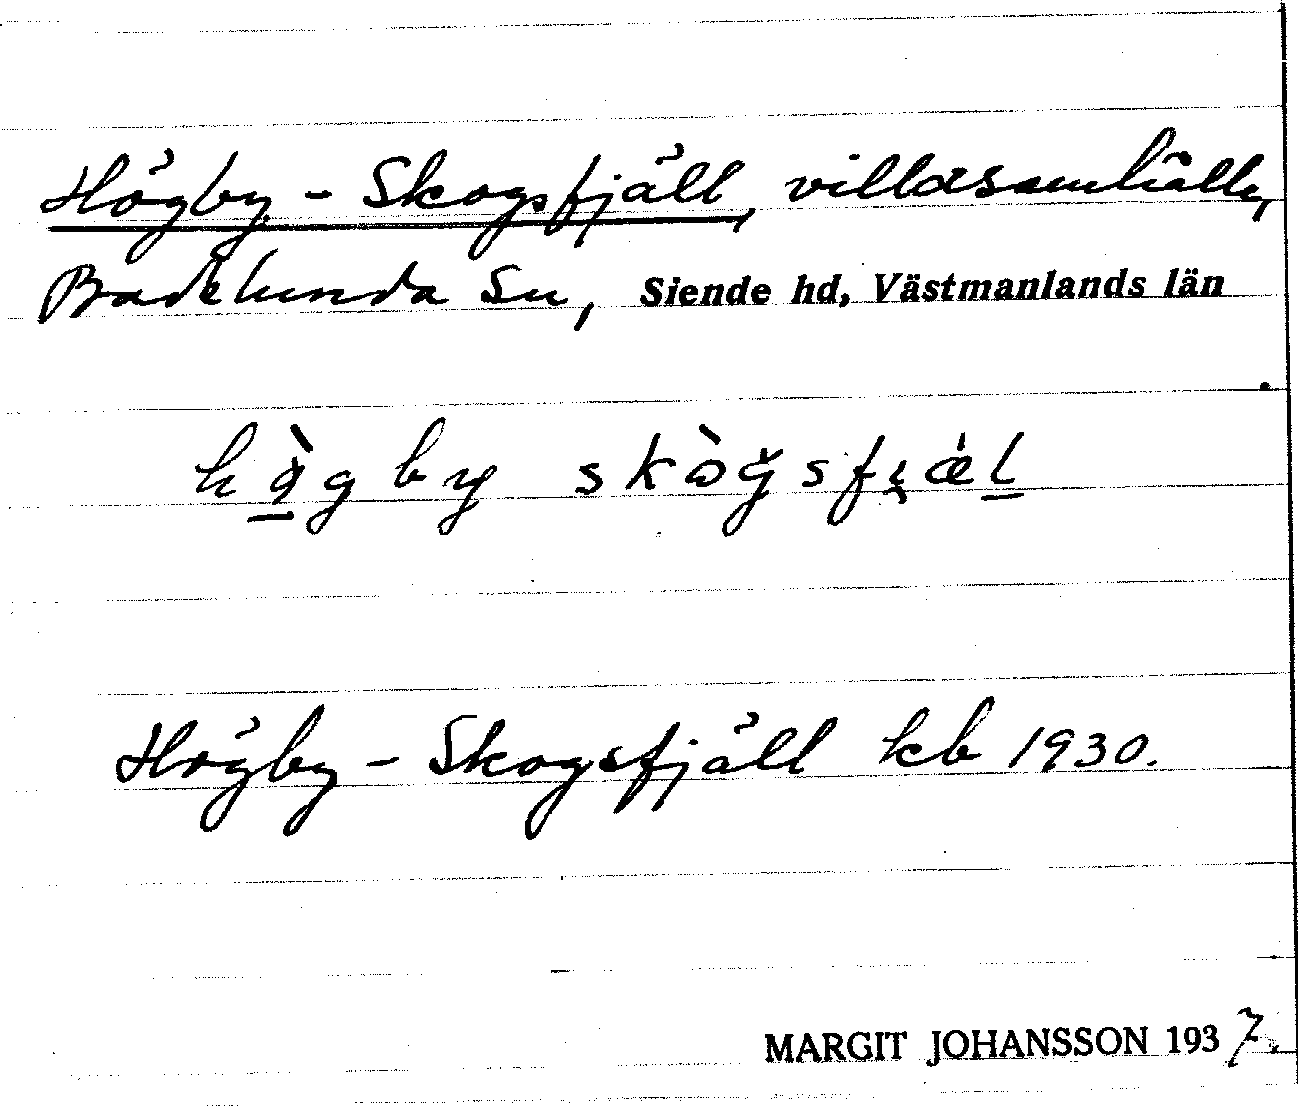 Högby - Skogsfjäll, villasamhälle,
Badelunda sn, Siende hd, Västmanlands län
Högby - Skogsfjäll kb 1930.
MARGIT JOHANSSON 1937.